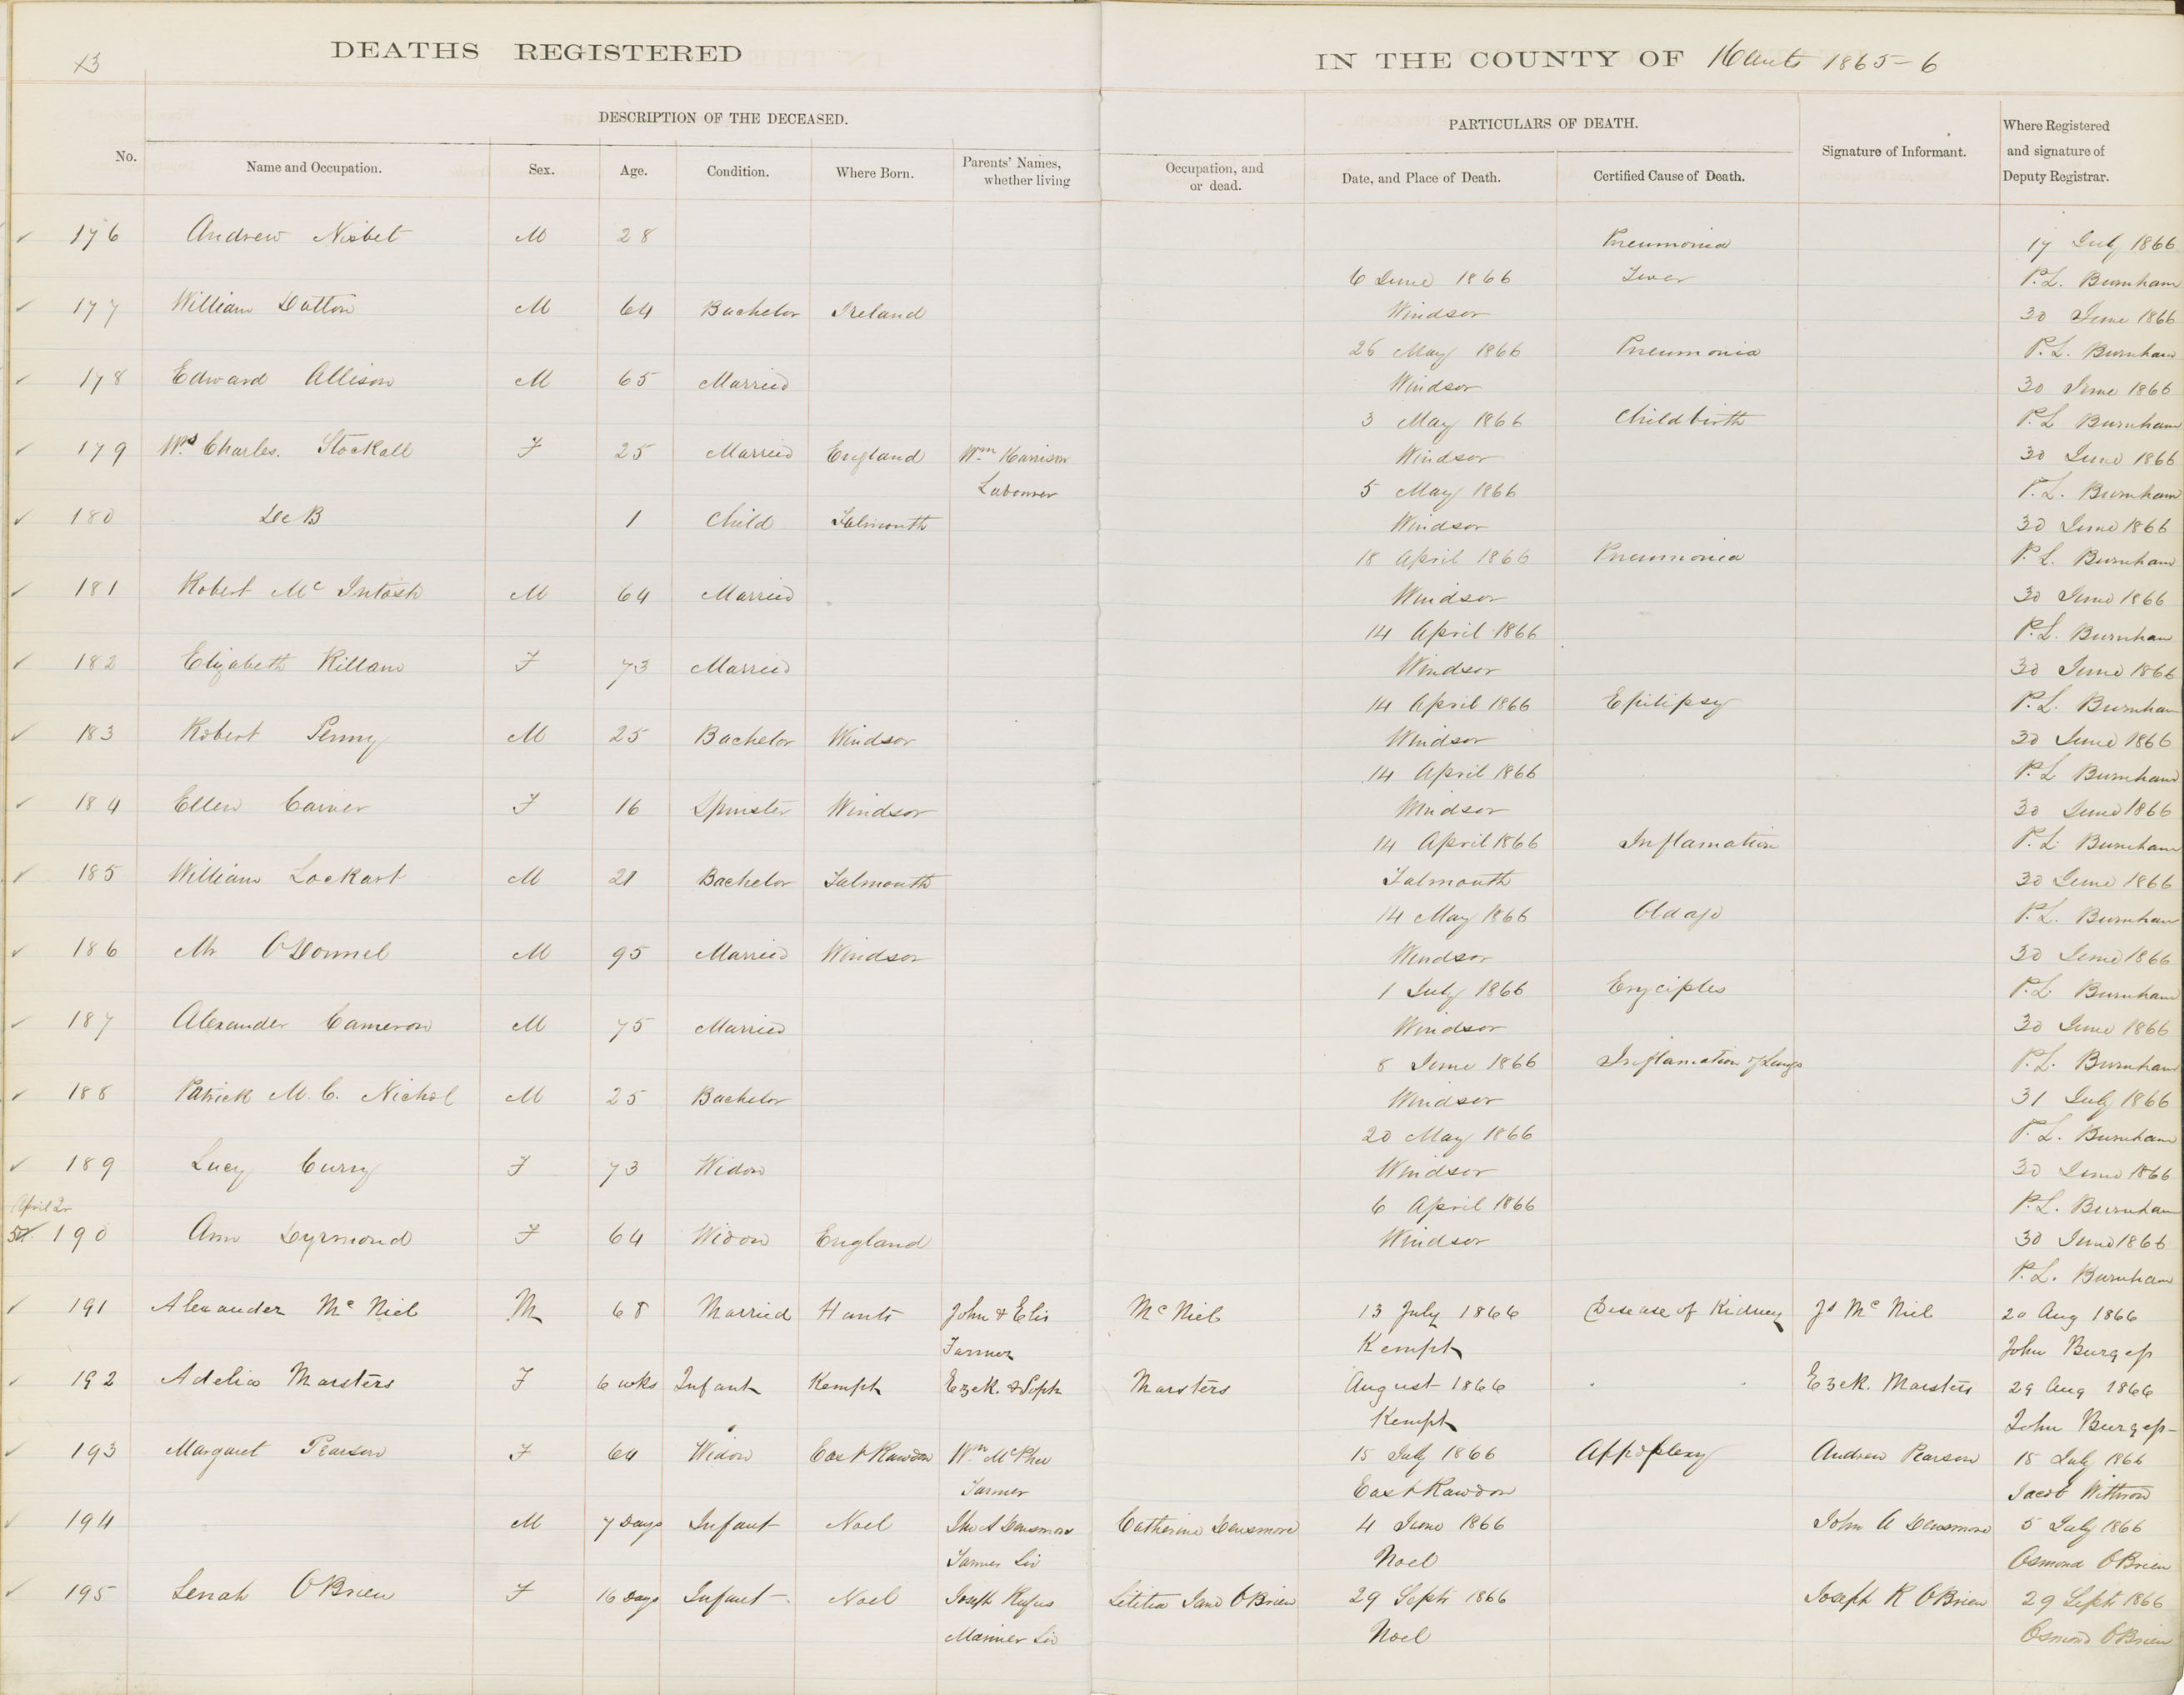 13
DEATHS REGISTERED IN THE COUNTY OF Hants 1865-6
DESCRIPTION OF THE DECEASED. PARTICULARS OF DEATH.
No. Name and Occupation. Sex. Age. Condition. Where Born. Parents' Names, whether living Occupation, and or dead. Date, and Place of Death. Certified Cause of Death. Signature of Informant. Where Registered and signature of Deputy Registrar.
176 Andrew Nisbet M 28 Pneumonia 17 July 1866
6 June 1866 Fever P.L. Burnham
177 William Dutton M 64 Bachelor Ireland Windsor 30 June 1866
26 May 1866 Pneumonia P.L. Burnham
178 Edward Allison M 65 Married Windsor 30 June 1866
3 May 1866 Childbirth P.L Burnham
179 Mrs Charles. Stockall F 25 Married England Wm Harrison Windsor 30 June 1866
Labourer 5 May 1866 P.L. Burnham
180 Do B 1 Child Falmouth Windsor 30 June 1866
18 April 1866 Pneumonia P.L. Burnham
181 Robert Mc Intosh M 64 Married Windsor 30 June 1866
14 April 1866 P.L. Burnham
182 Elizabeth Killam F 73 Married Windsor 30 June 1866
14 April 1866 Epilipsy P.L. Burnham
183 Robert Penny M 25 Bachelor Windsor Windsor 30 June 1866
14 April 1866 P.L Burnham
184 Ellen Carver F 16 Spinster Windsor Windsor 30 June 1866
14 April 1866 Inflamation P.L. Burnham
185 William Lockart M 21 Bachelor Falmouth Falmouth 30 June 1866
14 May 1866 Old age P.L. Burnham
186 Mr O'Donnel M 95 Married Windsor Windsor 30 June 1866
1 July 1866 Eryciples P.L. Burnham
187 Alexander Cameron M 75 Married Windsor 30 June 1866
8 June 1866 Inflamation of Lungs P.L. Burnham
188 Patrick M.C. Nichol M 25 Bachelor Windsor 31 July 1866
20 May 1866 P.L. Burnham
189 Lucy Curry F 73 Widow Windsor 30 June 1866
April 2r 6 April 1866 P.L. Burnham
190 Ann Dyrmond F 64 Widow England Windsor 30 June 1866
P.L. Burnham
191 Alexander Mc Niel M 68 Married Hants John & Elis Mc Niel 13 July 1866 Disease of Kidney Js Mc Niel 20 Aug 1866
Farmer Kempt John Burgess
192 Adelia Marsters F 6 wks Infant Kempt Ezek. & Soph Marsters August 1866 Ezek. Marsters 29 Aug 1866
Kempt John Burgess
193 Margaret Pearson F 64 Widow East Rawdon Wm McPhee 15 July 1866 Appoplexy Andrew Pearson 15 July 1866
Farmer East Rawdon Jacob Withrow
194 M 7 Days Infant Noel Jno A Densmore Catherine Densmore 4 June 1866 John A Densmore 5 July 1866
Farmer Liv Noel Osmond OBrien
195 Senah OBrien F 16 Days Infant Noel Joseph Rufus Letitia Jane OBrien 29 Sept 1866 Joseph R OBrien 29 Sept 1866
Mariner Liv Noel Osmond OBrien